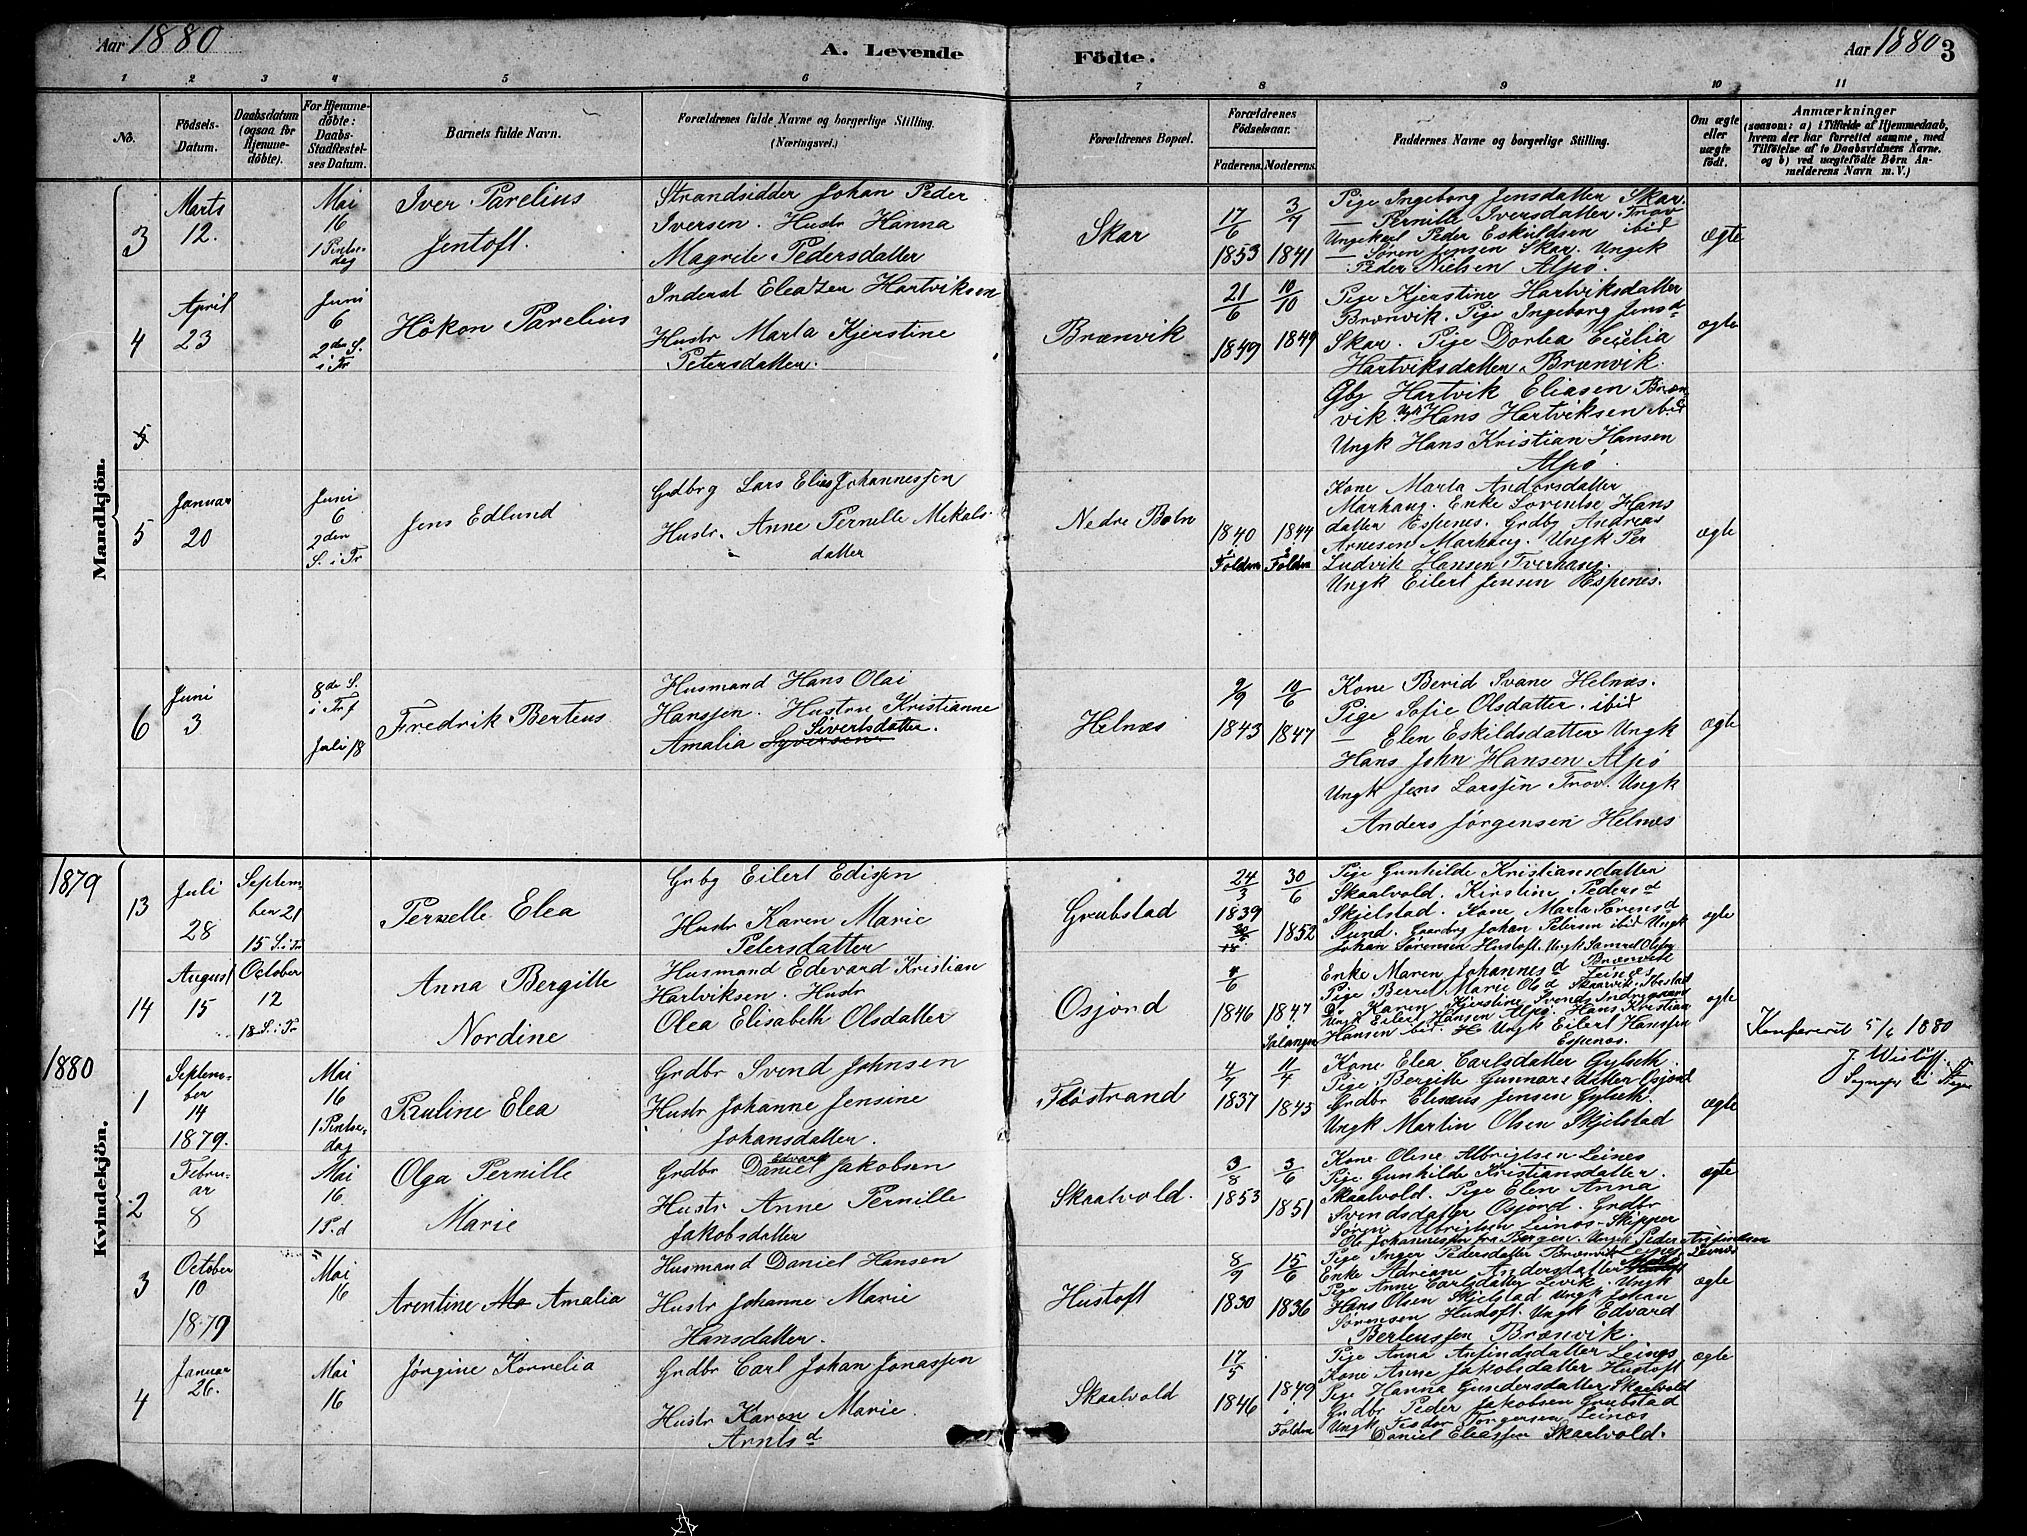 Aar 1880
A. Levende
Födte.
Aar 1880
3
1 2 3 4 5 6 7 8 9 10 11
No.
Födsels-
Datum.
Daabsdatum
(ogsaa for
Hjemme-
döbte).
For Hjemme-
döbte:
Daabs-
Stadfestel-
ses Datum.
Barnets fulde Navn.
Forældrenes fulde Navne og borgerlige Stilling.
(Næringsvei.)
Forældrenes Bopæl.
Forældrenes
Födselsaar.
Faderens. Moderens.
Faddernes Navne og borgerlige Stilling.
Om ægte
eller
uægte
födt.
Anmærkninger
(saasom: a) i Tilfælde af Hjemmedaab,
hvem der har forrettet samme, med
Tilföielse af to Daabsvidners Navne.
og b) ved uægtefödte Börn An-
melderens Navn m. V.)
Mandkjön.
3
Marts
12.
Mai
16
1 Pintse-
dag
Iver Parelius
Jentoft.
Strandsidder Johan Peder
Iversen. Hustr Hanna
Magrite Pedersdatter
Skar
17/6
1853
3/7
1841
Pige Ingeborg Jensdatter Skar.
— Pernille Iversdatter. Trov
Ungekarl Peder Eskildsen ibid
— Sören Jensen Skar. Ungk
Peder Nielsen Alpö.
ægte
4
April
23
Juni
6
2den S.
i Tr
Hökon Parelius
Inderst Eleazer Hartviksen
Hustr Marta Kjerstine
Petersdatter.
Brænvik
21/6
1849
10/10
1849
Pige Kjerstine Hartviksdatter
Brænvik. Pige Ingeborg Jensd
Skar. Pige Dortea Cecelia
Hartviksdatter Brænvik.
ægte
5
Gbg Hartvik Eliasen Bræn
vik. Ungk Hans Hartviksen ibid
Ungk Hans Kristian Hansen
Alpö.
5
Januar
20
Juni
6
2den
S. i Tr
Jens Edlund
Grdbrg Lars Elias Johannessen
Hustr. Anne Pernille Mekals-
datter
Nedre Botn
1840
i Folden
1844
i Folden
Kone Marta Andorsdatter
Marhaug. Enke Lorentse Hans
datter Espenes. Grdbg Andreas
Arnesen Marhaug. Ungk Per
Ludvik Hansen Tverhaug.
Ungk Eilert Jensen Espenes.
ægte
6
Juni
3
8de S.
i Trf
Juli 18
Fredrik Berteus
Husmand Hans Olai
Hanssen. Hustru Kristianne
Sivertsdatter.
Amalia Syversen
Helnæs
9/9
1843
10/6
1847
Kone Berid Svane Helnæs.
Pige Sofie Olsdatter. ibid
— Elen Eskildsdatter Ungk
Hans John Hansen Alpö
Ungk Jens Larssen Trov. Ungk
Anders Jörgensen Helnæs
ægte
Kvindekjön.
1879
13
Juli
28
Septem-
ber 21
15 S. i Tr
Pernelle Elea
Grbg Eilert Edissen
Hustr Karen Marie
Petersdatter
Grubstad
24/3
1839
30/6
1852
Pige Gunhilde Kristiansdatter
Skaalvold. Kirstine Pedersd
Skjelstad. Kone Marta Sörensd
Sund. Gaardbrg Johan Petersen ibid Ungk
Johan Sörensen Hustoft. Ungk Samuel
ægte
14
August
15
October
12
18 S. i Tr
Anna Bergitte
Nordine
Husmand Edevard Kristian
Hartviksen. Hustr
Olea Elisabeth Olsdatter
Osjord
4/6
1846
1847
i Salangen
Enke Maren Johannesd Brænvik
Leinæs
Pige Berret Marie Olsd Skaarvik. Ibestad
Do Karen Kjerstine Svends
Ungk Eilert Hansen Alpö. Hans Kristian
Hansen ibid. Ungk Eilert Hanssen
Espenæs.
ægte
Konfereret 5/6 1880
J. Wisløff.
1880
1
Septem-
ber
14
1879.
Mai
16
1 Pintse-
dag
Pauline Elea
Grdbr Svend Johnsen
Hustr Johanne Jensine
Johansdatter.
Flöstrand
4/7
1837
11/4
1845
Kone Elea Carlsdatter Gylseth.
Pige Bergitte Gunnarsdatter Osjord
Grdbr Elisæus Jensen Gylseth.
Ungk Martin Olsen Skjelstad
ægte
2
Febru-
ar
8
Mai
16
1 P. d
Olga Pernille
Marie
Edvard
Grdbr Daniel Jakobsen
Hustr Anne Pernille
Jakobsdatter
Skaalvold.
3/8
1853
3/6
1851
Kone Oline Albrigtsen Leines
Pige Gunhilde Kristiansdatter.
Skaalvold. Pige Elen Anna
Svendsdatter Osjord. Grdbr
Sören Albrigtsen Leinæs. Skipper
Ole Johannessen fra Bergen. Ungk Peder Anfindsen
Leinæs
ægte
3
October
10
1879
Mai
16
Arentine Ma Amalia
Husmand Daniel Hansen
Hustr Johanne Marie
Hansdatter.
Hustoft
8/9
1830
15/6
1836
Pige Inger Pedersdatter Brænvik
Enke Adriane Andersdatter
Pige Anne Carlsdatter Levik. Ungk
Hans Olsen Skjelstad Ungk Johan
Sörensen Hustoft. Ungk Edvard
Berteussen Brænvik.
ægte
4
Januar
26.
Mai
16
Jörgine Kornelia
Grdbr Carl Johan Jonassen
Hustr Karen Marie
Arntsd
Skaalvold
17/5
1846
1849
i
Folden
Pige Anna Anfindsdatter Leines
Kone Anne Jakobsdatter Hustoft
Pige Hanna Gundersdatter Skaalvold
Grdbr Peder Jakobsen Grubstad
Ungk Teodor Torgersen Leinæs
Daniel Eliassen Skaalvold.
ægte